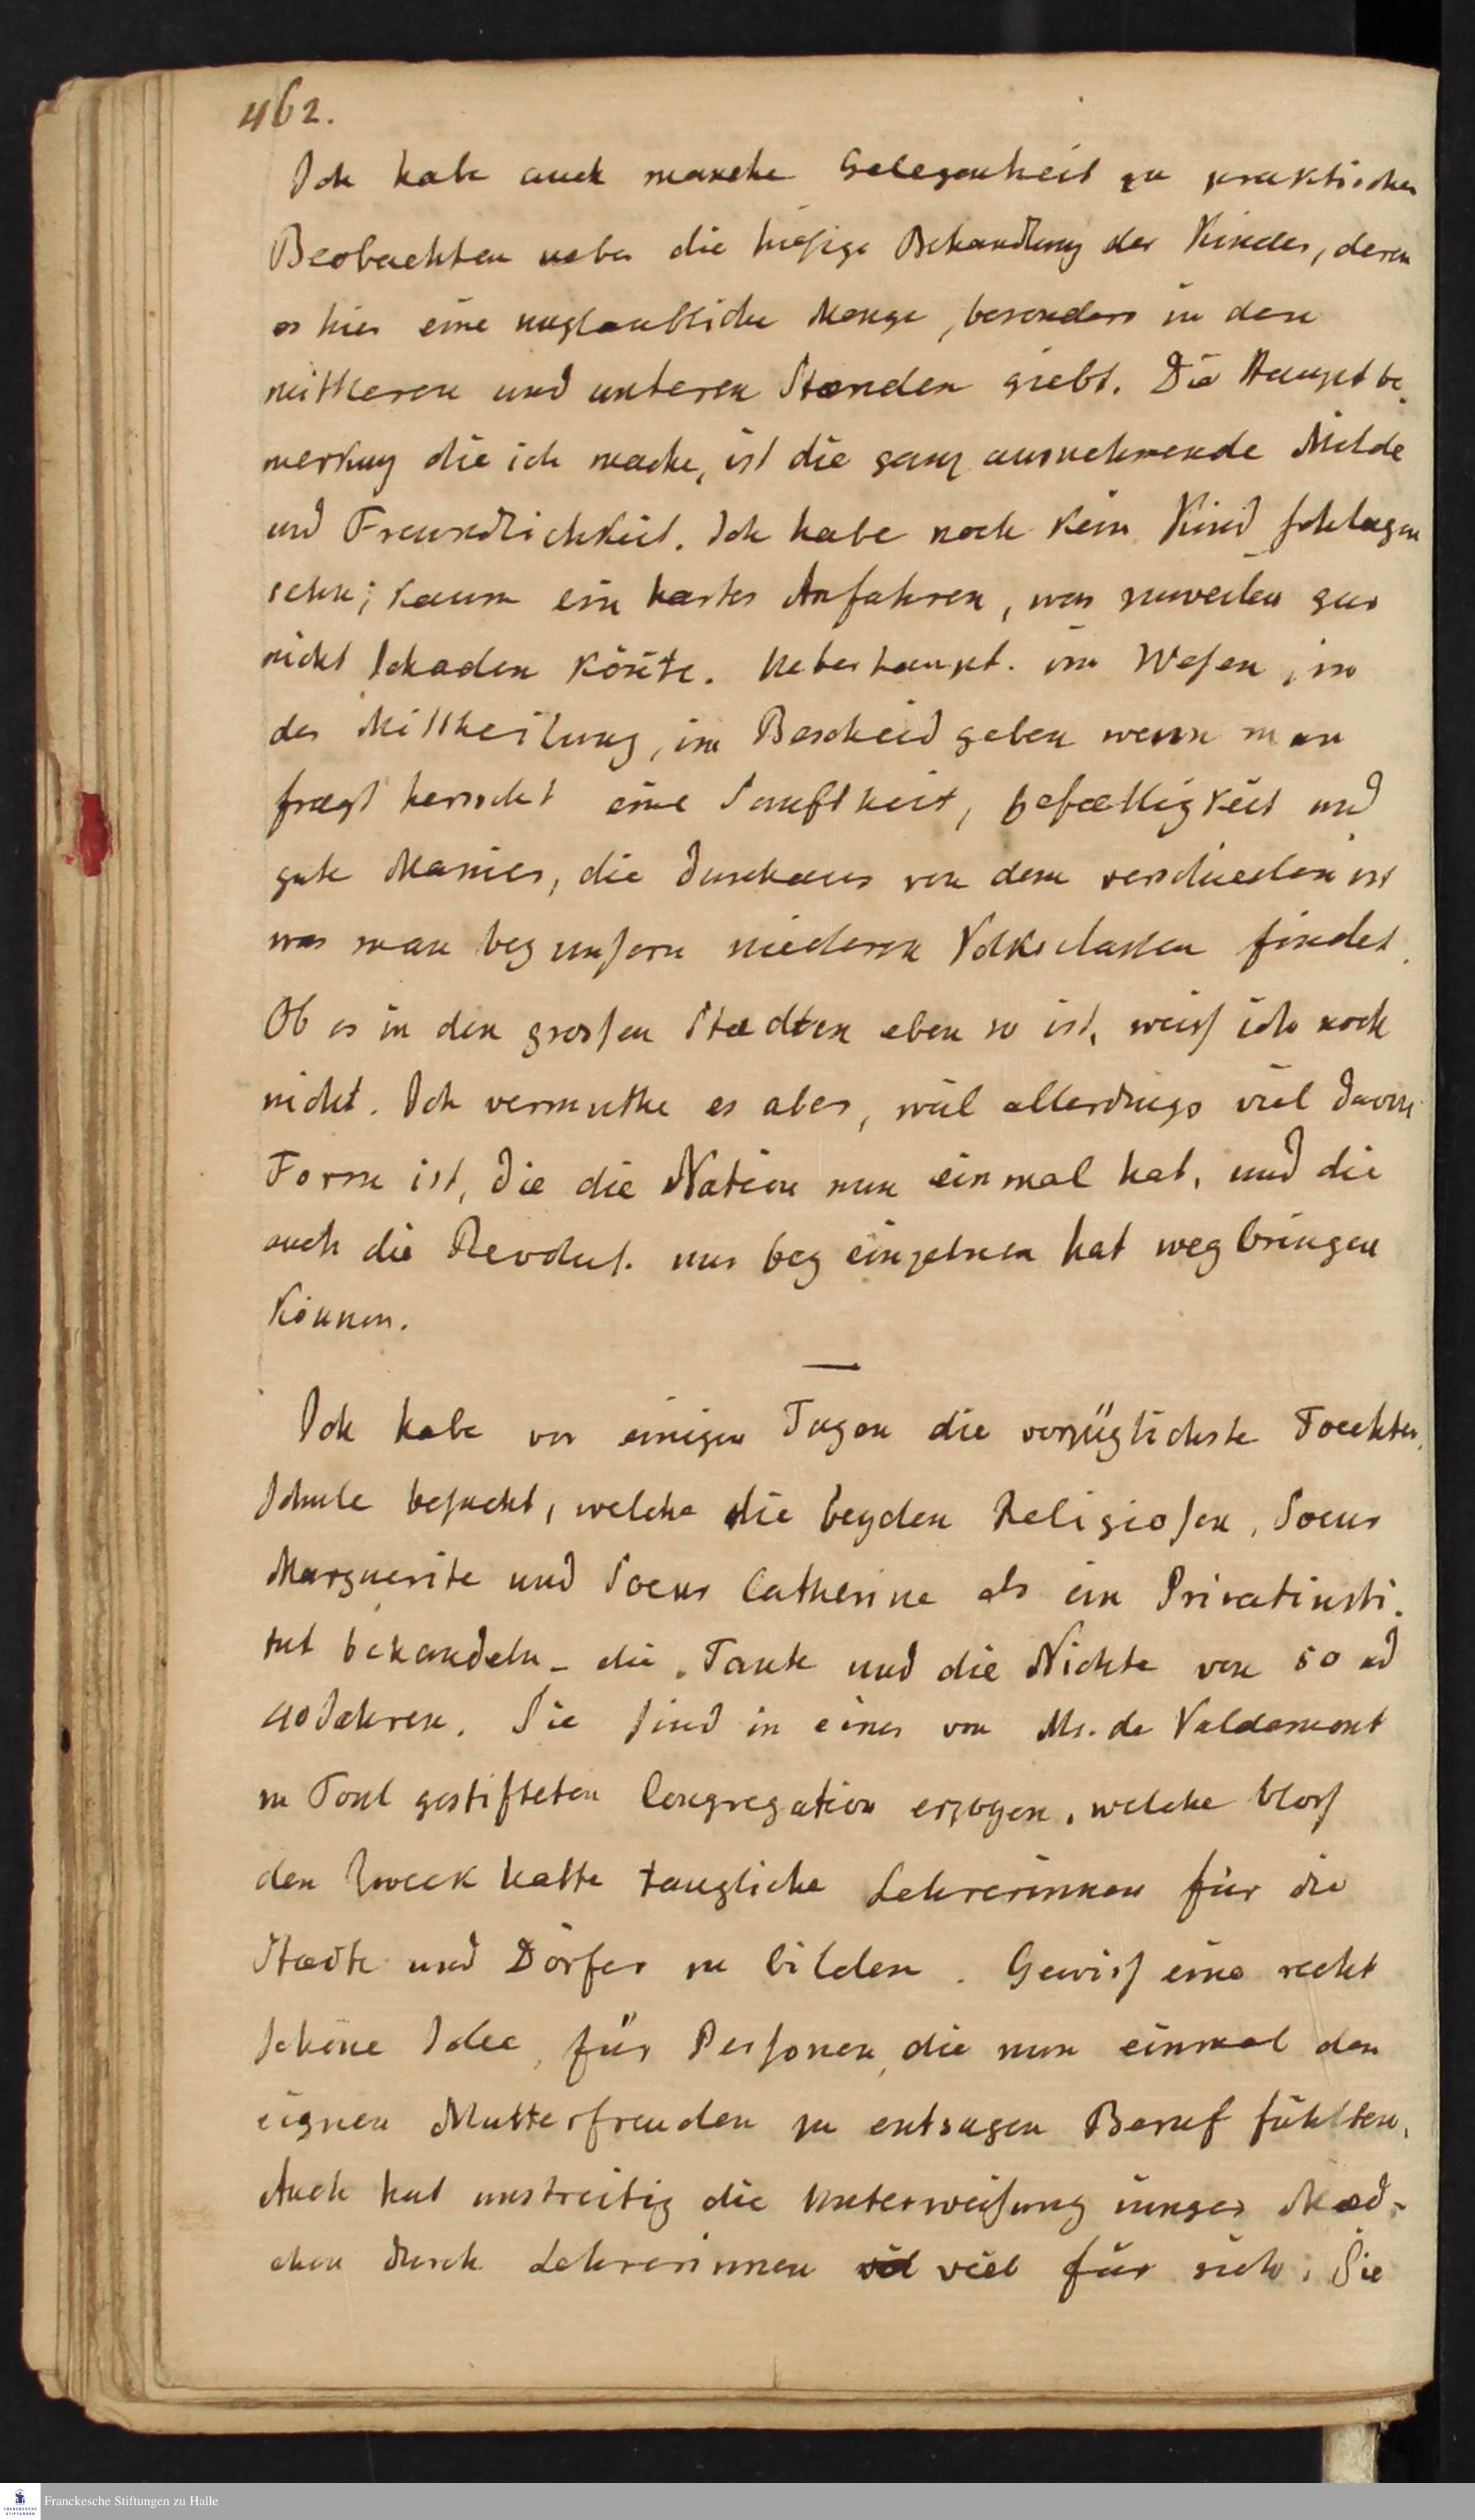 462.
Ich habe auch manche Gelegenheit zu praktischen
Beobachten ueber die hiesige Behandlung der Kinder, deren
es hier eine unglaubliche Menge, besonders in den
mittleren und unteren Staenden giebt. Die Hauptbe-
merkung die ich mache, ist die ganz ausnehmende Milde
und Freundlichkeit. Ich habe noch kein Kind schlagen
sehn; kaum ein hartes Anfahren, was zuweilen gar
nicht schaden könte. Ueberhaupt. im Wesen, in
der Mittheilung, im Bescheid geben wenn man
fragt herrscht eine Sanftheit, Gefaelligkeit und
gute Manier, die durchaus von dem verschieden ist
was man bey unsern niederen Volksclassen findet.
Ob es in den grossen Staedten eben so ist, weiss ich noch
nicht. Ich vermuthe es aber, weil allerdings viel davon
Form ist, die die Nation nun einmal hat, und die
auch die Revolut. nur bey einzelnen hat weg bringen
können.
Ich habe vor einigen Tagen die vorzüglichste Toechter,
Schule besucht, welche die beyden Religiosen, Soeur
Marguerite und Soeur Catherine als ein Privatinsti-
tut behandeln - die Tante und die Nichte von 50 ud
40 Jahren. Sie sind in einer von Mr. de Valdemont
zu Toul gestifteten Congregation erzogen, welche bloss
den Zweck hatte taugliche Lehrerinnen für die
Staedte und Dörfer zu bilden. Gewiss eine recht
schöne Idee, für Personen, die nun einmal den
eignen Mutterfreuden zu entsagen Beruf fühlten,
Auch hat unstreitig die Unterweisung iunger Maed-
chen durch Lehrerinnen viel viel für sich. Sie
Franckesche Stiftungen zu Halle
FRANCKESCHE STIFTUNGEN